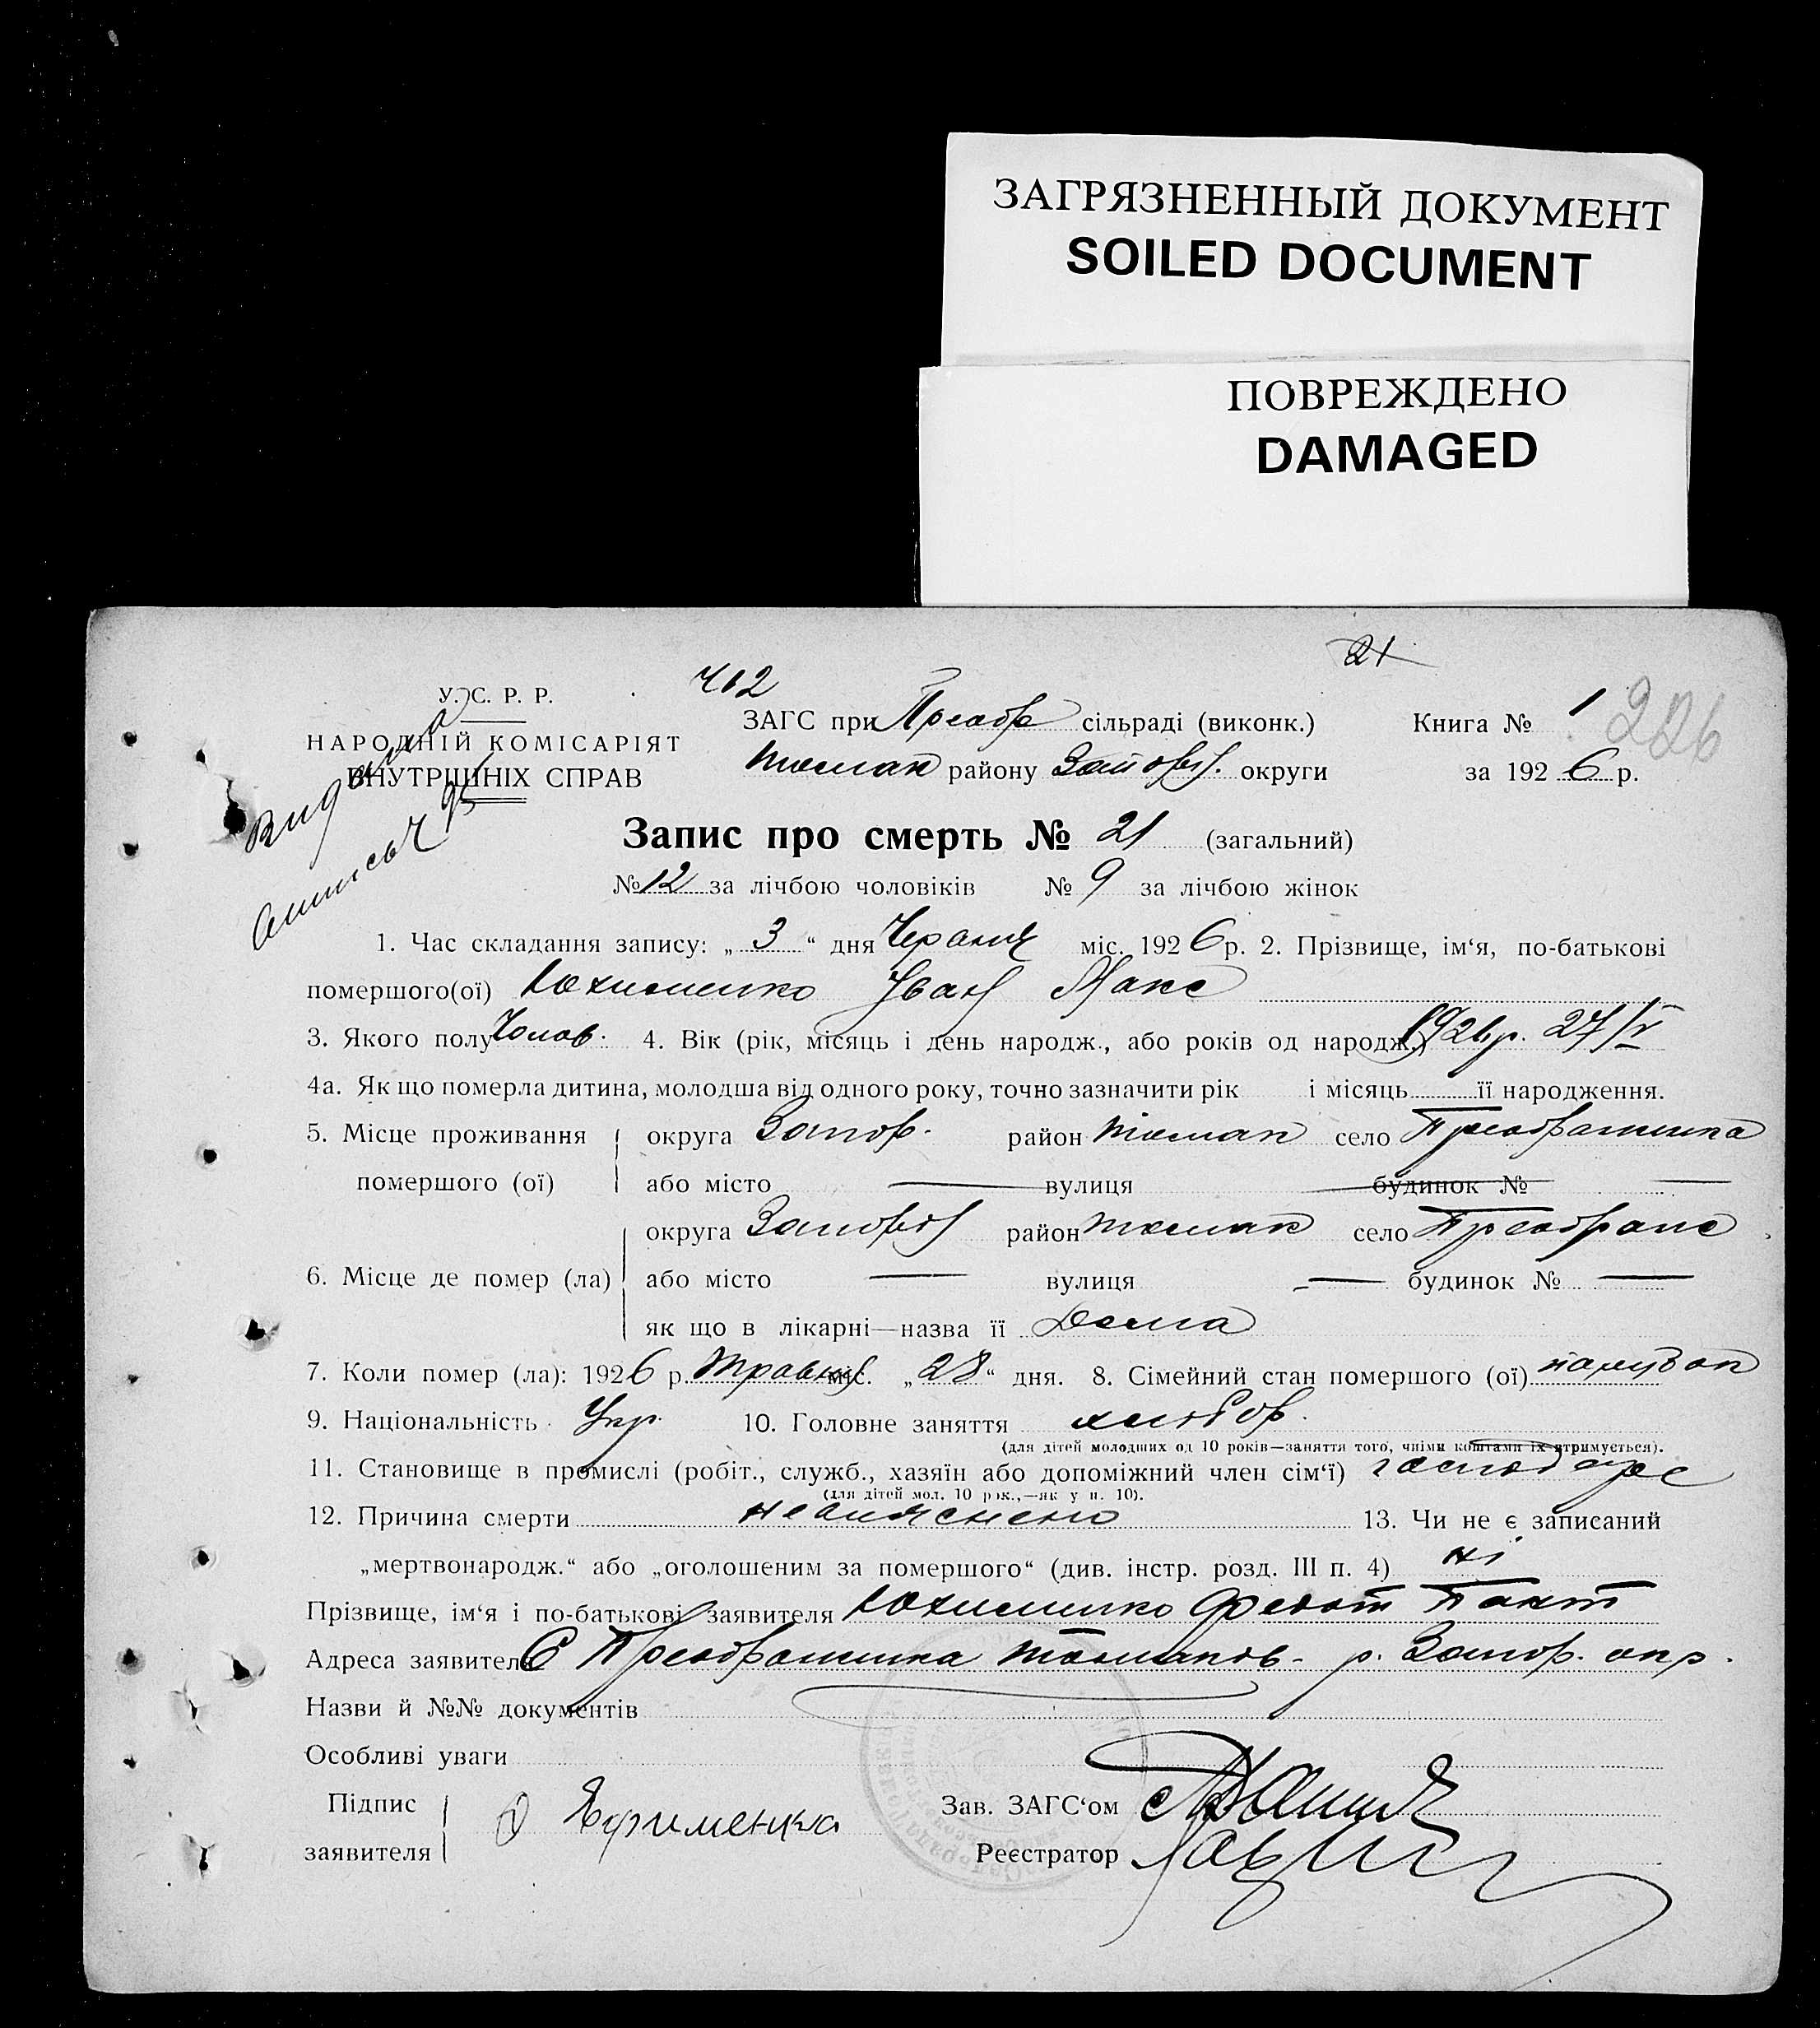 ЗАГРЯЗНЕННЫЙ ДОКУМЕНТ
SOILED DOCUMENT
ПОВРЕЖДЕНО
DAMAGED
21
412
У. С. Р. Р.
НАРОДНІЙ КОМІСАРІЯТ
ВНУТРІШНІХ СПРАВ
ЗАГС при Преобр сільраді (виконк.)
Книга № 1
226
Токмак району округи
за 192 6 р.
Запис про смерть № 21 (загальний)
№ 12 за лічбою чоловіків № 9 за лічбою жінок
1. Час складання запису: „ 3 “ дня Червня міс. 192 6 р. 2. Прізвище, ім‘я, по-батькові
помершого(ої) Юхименко Іван Макс
3. Якого полу Чолов. 4. Вік (рік, місяць і день народж., або років од народж.) 1926 р. 27/V
4а. Як що померла дитина, молодша від одного року, точно зазначити рік і місяць її народження.
5. Місце проживання округа Запор. район Токмак село Преображенка
помершого (ої) або місто — вулиця — будинок № —
округа район Токмак село Преображе
6. Місце де помер (ла) або місто — вулиця — будинок № —
як що в лікарні—назва її Дома
7. Коли помер (ла): 192 6 р. Травня міс. „ 28 “ дня. 8. Сімейний стан помершого (ої)
9. Національність Укр. 10. Головне заняття хлібор.
(для дітей молодших од 10 років—заняття того, чиїми коштами їх утримується).
11. Становище в промислі (робіт., служб., хазяїн або допоміжний член сім‘ї)
(для дітей мол. 10 рок.,—як у п. 10).
12. Причина смерти 13. Чи не є записаний
„мертвонародж.“ або „оголошеним за помершого“ (див. інстр. розд. III п. 4) ні
Прізвище, ім‘я і по-батькові заявителя Юхименко Федот
Адреса заявителя С Преображенка Токмаков. р. Запор. окр.
Назви й №№ документів
Особливі уваги
Підпис
заявителя
Зав. ЗАГС‘ом
Реєстратор